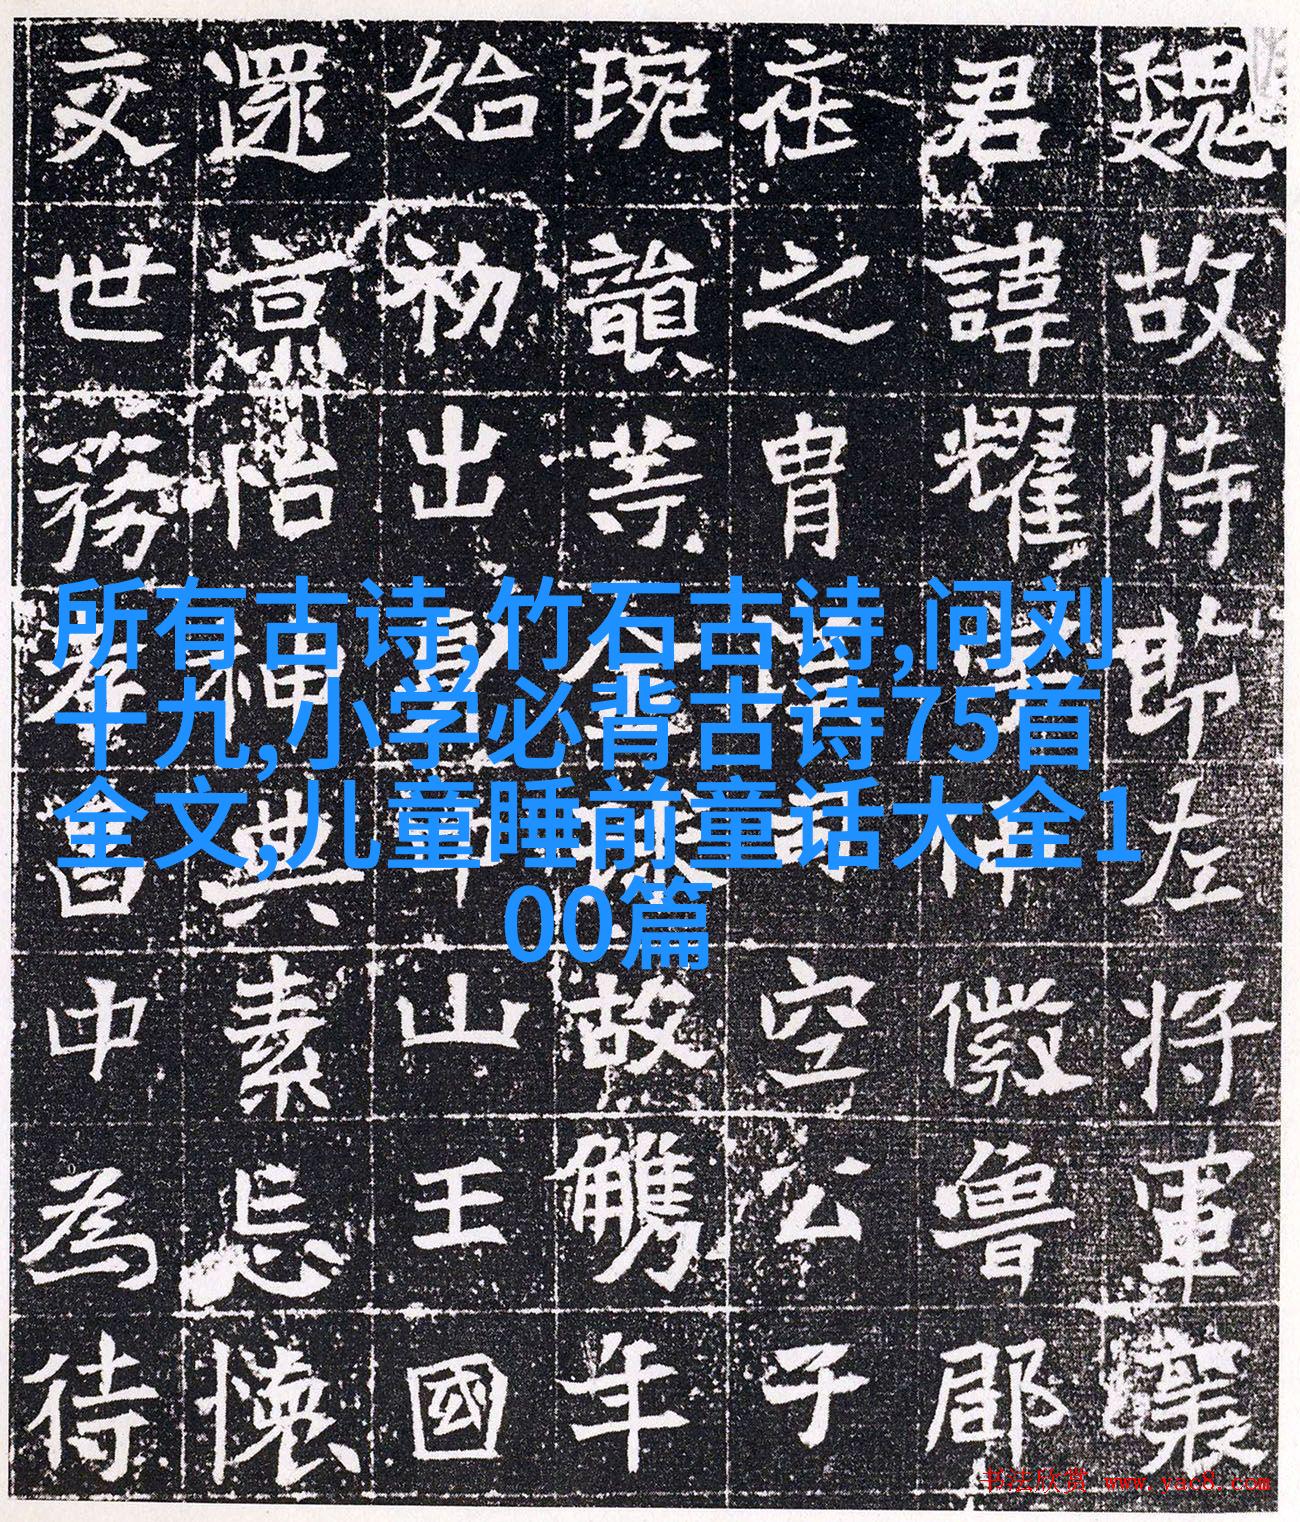 魏故持節左將軍襄
君諱耀徽魯郡
在之胄空公子
琬韻等金故觿年
始初出身中山王國
還京怡神典素忘懷
交世務中為待
所有古诗,竹石古诗,问刘
十九,小学必背古诗75首
全文,儿童睡前童话大全1
00篇
书法欣赏 www.yac8.com